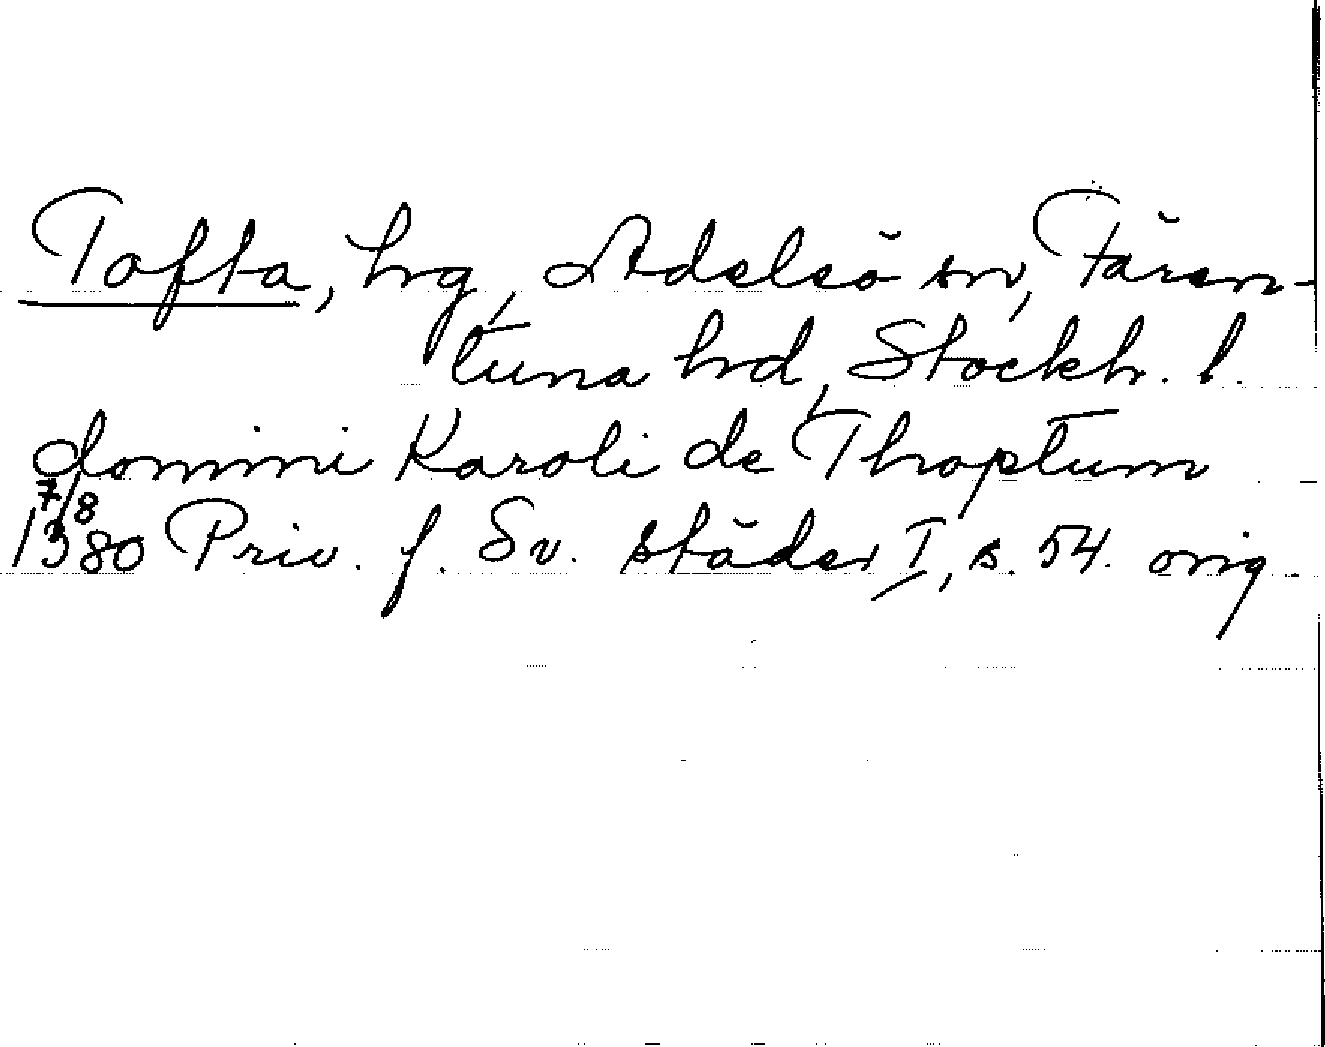 Tofta, hrg, Adelsö sn, Fären-
tuna hrd, Stockh. l.
domini Karoli de Thoptum
7/8
1380 Priv. f. Sv. städer I, s. 54. orig